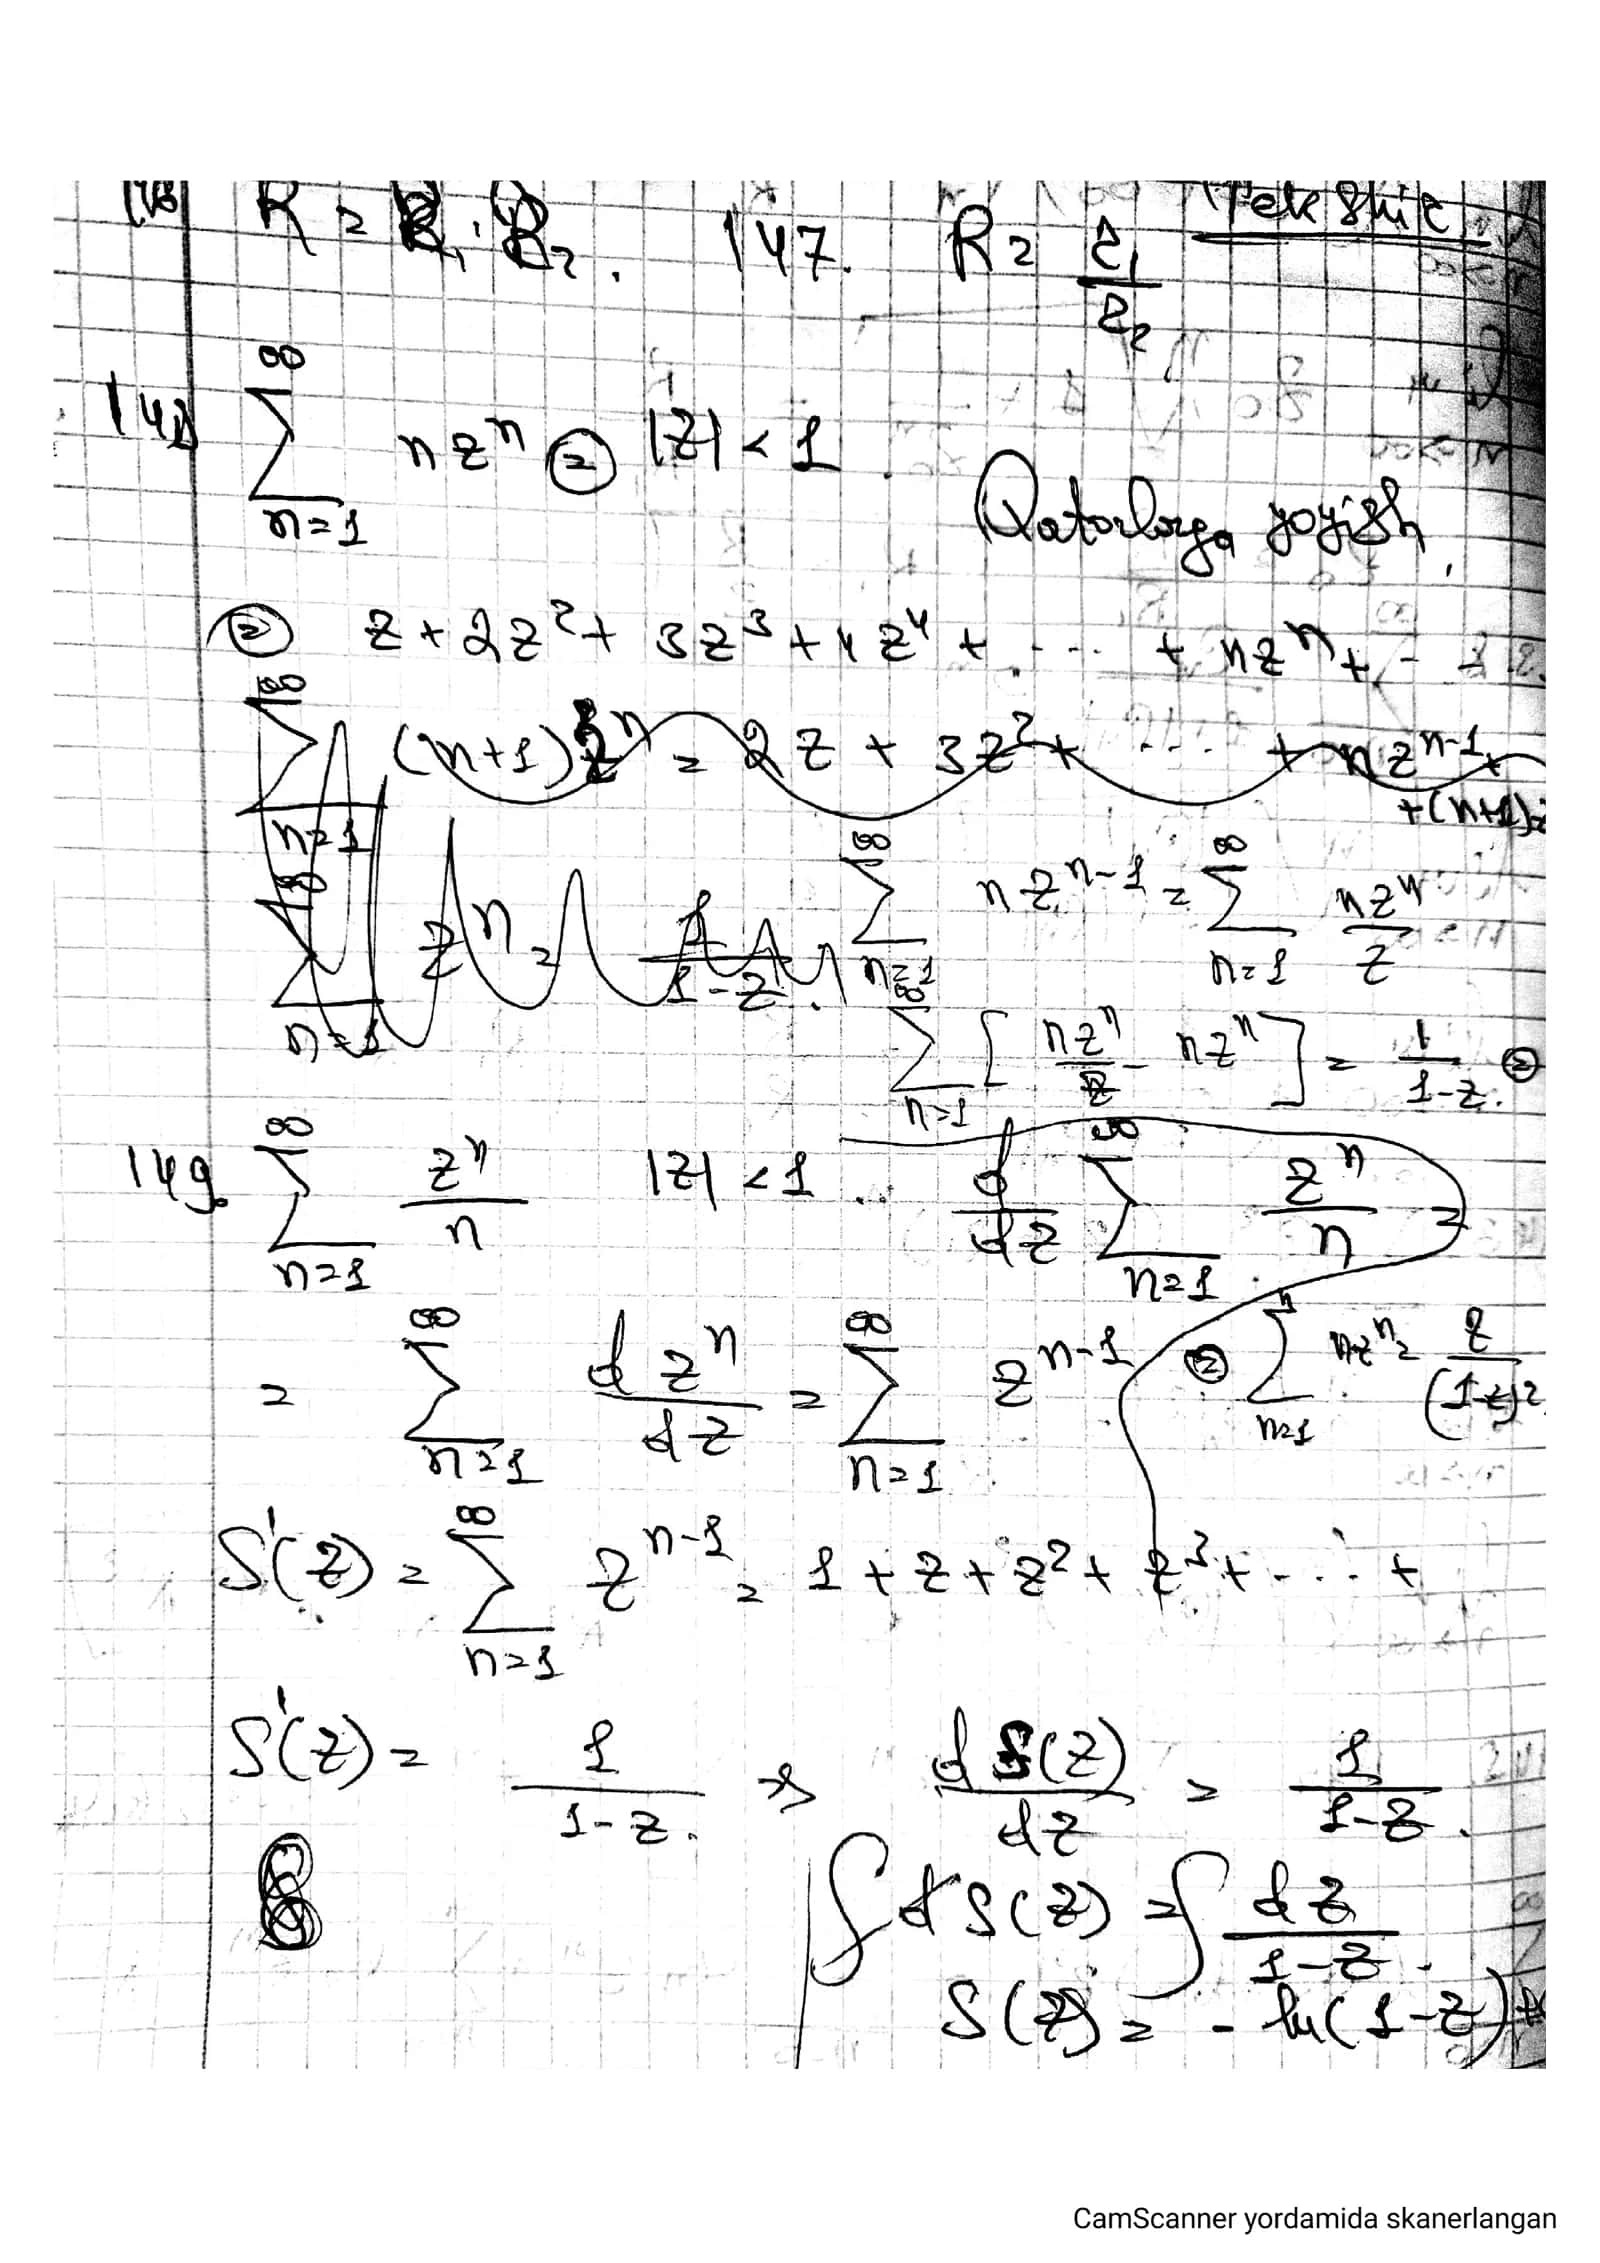 146 R = R₁·R₂. 147. R = r₁/r₂ Tekshir
148 ∑_{n=1}^{∞} n zⁿ (=) |z| < 1.
Qatorlarga yoyish.
(=) z + 2z² + 3z³ + 4z⁴ + .... + nzⁿ + - 
∑_{n=1}^{∞} (n+1)zⁿ = 2z + 3z² + .... + nz^{n-1} +
+(n+1)z
∑_{n=1}^{∞} zⁿ = 1/(1-z). ∑_{n=1}^{∞} n z^{n-1} = ∑_{n=1}^{∞} nzⁿ/z
∑_{n=1}^{∞} [nzⁿ/z - nzⁿ] = 1/(1-z). (=)
149. ∑_{n=1}^{∞} zⁿ/n |z| < 1 .. d/dz ∑_{n=1}^{∞} zⁿ/n =
= ∑_{n=1}^{∞} d zⁿ/dz = ∑_{n=1}^{∞} z^{n-1} (=) ∑_{n=1}^{n} nzⁿ = z/(1-z)²
S'(z) = ∑_{n=1}^{∞} z^{n-1} = 1 + z + z² + z³ + .... +
S'(z) = 1/(1-z). ⇒ d S(z)/dz = 1/(1-z).
∫ d S(z) = ∫ dz/(1-z).
S(z) = - ln(1-z) +
CamScanner yordamida skanerlangan